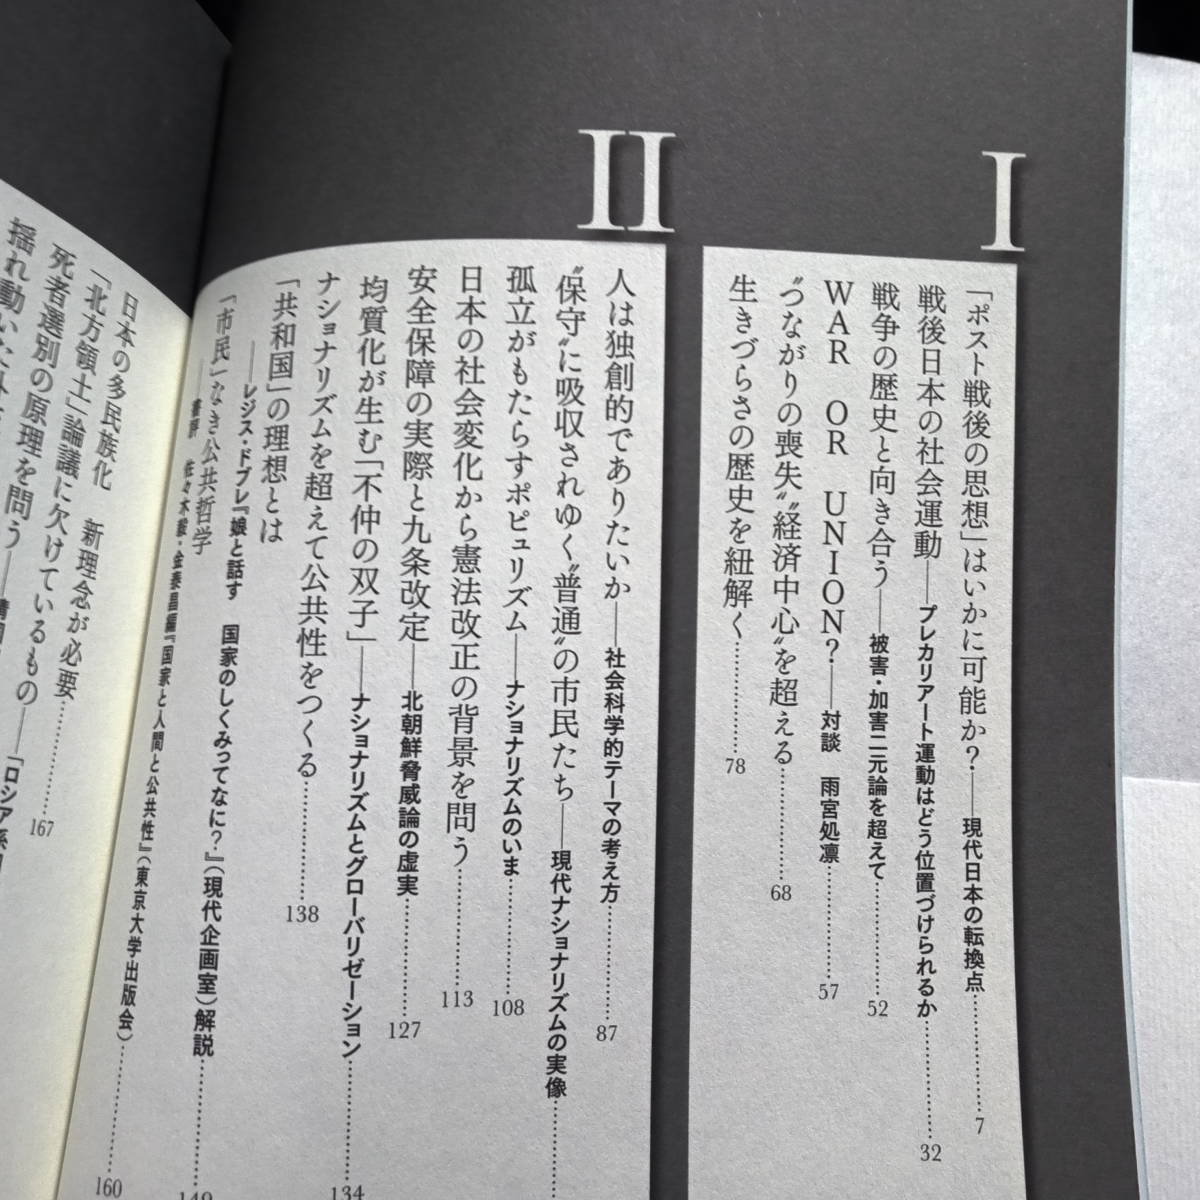 I
「ポスト戦後の思想」はいかに可能か？――現代日本の転換点…………7
戦後日本の社会運動――プレカリアート運動はどう位置づけられるか…………32
戦争の歴史と向き合う――被害・加害二元論を超えて…………52
WAR OR UNION？――対談 雨宮処凛…………57
〝つながりの喪失〟〝経済中心〟を超える…………68
生きづらさの歴史を紐解く…………78
II
人は独創的でありたいか――社会科学的テーマの考え方…………87
〝保守〟に吸収されゆく〝普通〟の市民たち――現代ナショナリズムの実像…………
孤立がもたらすポピュリズム――ナショナリズムのいま…………108
日本の社会変化から憲法改正の背景を問う…………113
安全保障の実際と九条改定――北朝鮮脅威論の虚実…………127
均質化が生む「不仲の双子」――ナショナリズムとグローバリゼーション…………134
ナショナリズムを超えて公共性をつくる…………138
「共和国」の理想とは
――レジス・ドブレ『娘と話す 国家のしくみってなに？』（現代企画室）解説…………149
「市民」なき公共哲学
――書評 佐々木毅・金泰昌編『国家と人間と公共性』（東京大学出版会）…………160
日本の多民族化 新理念が必要
「北方領土」論議に欠けているもの…………167
死者選別の原理を問う――
揺れ動いた
「ロシア系